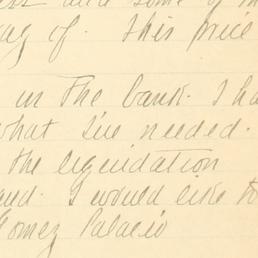 and some of
of. This price
in the bank. I ha
what I've needed.
the liquidation
and. I would like to
Gomez Palacio